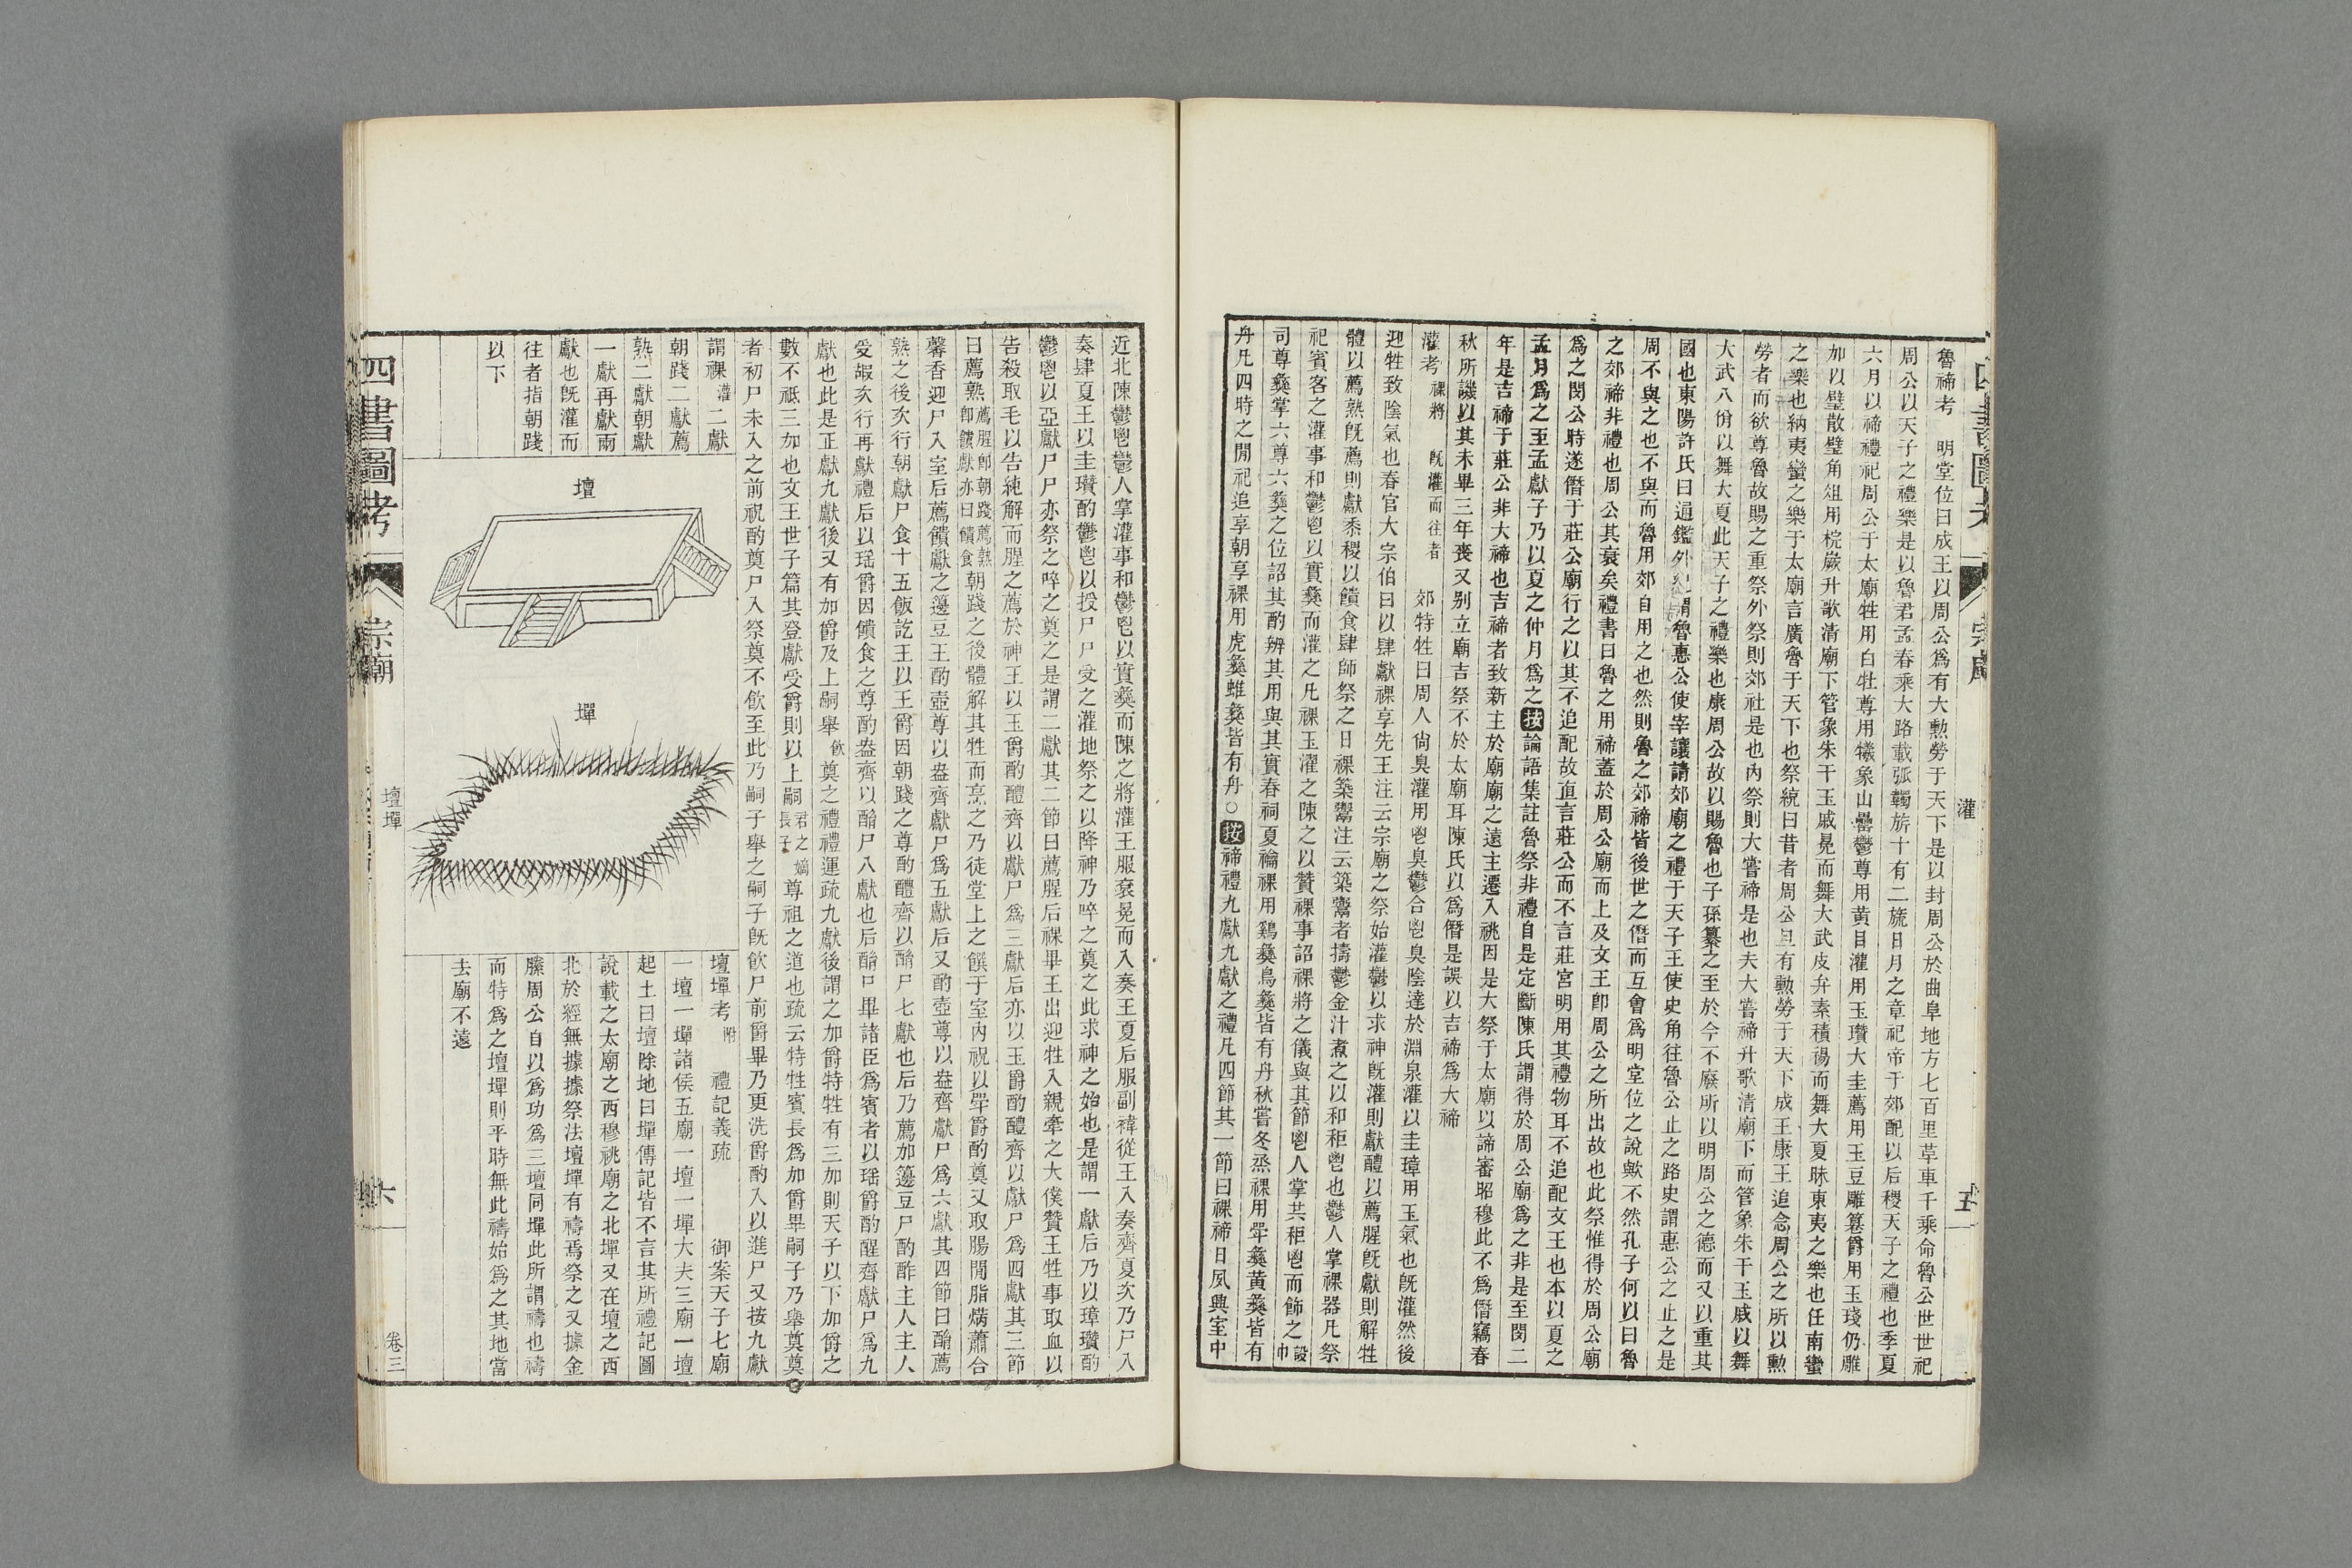 魯禘考　明堂位曰成王以周公爲有大勲勞于天下是以封周公於曲阜地方七百里革車千乘命魯公世世祀
周公以天子之禮樂是以魯君孟春乘大路載弧韣旂十有二旒日月之章祀帝于郊配以后稷天子之禮也季夏
六月以禘禮祀周公于太廟牲用白牡尊用犧象山罍鬱尊用黄目灌用玉瓚大圭薦用玉豆雕篹爵用玉琖仍雕
加以璧散璧角俎用梡嶡升歌清廟下管象朱干玉戚冕而舞大武皮弁素積裼而舞大夏昧東夷之樂也任南蠻
之樂也納夷蠻之樂于太廟言廣魯于天下也祭統曰昔者周公旦有勲勞于天下成王康王追念周公之所以勲
勞者而欲尊魯故賜之重祭外祭則郊社是也内祭則大嘗禘是也夫大嘗禘升歌清廟下而管象朱干玉戚以舞
大武八佾以舞大夏此天子之禮樂也康周公故以賜魯也子孫纂之至於今不廢所以明周公之德而又以重其
國也東陽許氏曰通鑑外紀謂魯惠公使宰讓請郊廟之禮于天子王使史角往魯公止之路史謂惠公之止之是
周不與之也不與而魯用郊自用之也然則魯之郊禘皆後世之僭而互會爲明堂位之說歟不然孔子何以曰魯
之郊禘非禮也周公其衰矣禮書曰魯之用禘蓋於周公廟而上及文王卽周公之所出故也此祭惟得於周公廟
爲之閔公時遂僭于莊公廟行之以其不追配故直言莊公而不言莊宮明用其禮物耳不追配文王也本以夏之
孟月爲之至孟獻子乃以夏之仲月爲之按論語集註魯祭非禮自是定斷陳氏謂得於周公廟爲之非是至閔二
年是吉禘于莊公非大禘也吉禘者致新主於廟廟之遠主遷入祧因是大祭于太廟以諦審昭穆此不爲僭竊春
秋所譏以其未畢三年喪又别立廟吉祭不於太廟耳陳氏以爲僭是誤以吉禘爲大禘
灌考　祼將　旣灌而往者　郊特牲曰周人尙臭灌用鬯臭鬱合鬯臭陰達於淵泉灌以圭璋用玉氣也旣灌然後
迎牲致陰氣也春官大宗伯曰以肆獻祼享先王注云宗廟之祭始灌鬱以求神旣灌則獻醴以薦腥旣獻則解牲
體以薦熟旣薦則獻黍稷以饋食肆師祭之日祼築鬻注云築鬻者擣鬱金汁煮之以和秬鬯也鬱人掌祼器凡祭
祀賓客之灌事和鬱鬯以實彝而灌之凡祼玉濯之陳之以贊祼事詔祼將之儀與其節鬯人掌共秬鬯而飾之設巾
司尊彝掌六尊六彝之位詔其酌辨其用與其實春祠夏禴祼用鷄彝鳥彝皆有舟秋嘗冬烝祼用斝彝黄彝皆有
舟凡四時之閒祀追享朝享祼用虎彝蜼彝皆有舟○按禘禮九獻九獻之禮凡四節其一節曰祼禘日夙興室中
灌
五
近北陳鬱鬯鬱人掌灌事和鬱鬯以實彝而陳之將灌王服袞冕而入奏王夏后服副褘從王入奏齊夏次乃尸入
奏肆夏王以圭瓚酌鬱鬯以授尸尸受之灌地祭之以降神乃啐之奠之此求神之始也是謂一獻后乃以璋瓚酌
鬱鬯以亞獻尸尸亦祭之啐之奠之是謂二獻其二節曰薦腥后祼畢王出迎牲入親牽之大僕贊王牲事取血以
告殺取毛以告純解而腥之薦於神王以玉爵酌醴齊以獻尸爲三獻后亦以玉爵酌醴齊以獻尸爲四獻其三節
曰薦熟薦腥卽朝踐薦熟卽饋獻亦曰饋食朝踐之後體解其牲而烹之乃徒堂上之饌于室内祝以斝爵酌奠又取腸間脂焫蕭合
馨香迎尸入室后薦饋獻之籩豆王酌壺尊以盎齊獻尸爲五獻后又酌壺尊以盎齊獻尸爲六獻其四節曰酳薦
熟之後次行朝獻尸食十五飯訖王以玉爵因朝踐之尊酌醴齊以酳尸七獻也后乃薦加籩豆尸酌酢主人主人
受嘏次行再獻禮后以瑶爵因饋食之尊酌盎齊以酳尸八獻也后酳尸畢諸臣爲賓者以瑶爵酌醒齊獻尸爲九
獻也此是正獻九獻後又有加爵及上嗣舉飮奠之禮禮運疏九獻後謂之加爵特牲有三加則天子以下加爵之
數不祗三加也文王世子篇其登獻受爵則以上嗣君之嫡長子尊祖之道也疏云特牲賓長爲加爵畢嗣子乃舉奠奠
者初尸未入之前祝酌奠尸入祭奠不飮至此乃嗣子舉之嗣子旣飮尸前爵畢乃更洗爵酌入以進尸又按九獻
謂祼灌二獻
朝踐二獻薦
熟二獻朝獻
一獻再獻兩
獻也旣灌而
往者指朝踐
以下
壇
墠
壇墠考附　禮記義疏　御案天子七廟
一壇一墠諸侯五廟一壇一墠大夫三廟一壇
起土曰壇除地曰墠傳記皆不言其所禮記圖
說載之太廟之西穆祧廟之北墠又在壇之西
北於經無據據祭法壇墠有禱焉祭之又據金
縢周公自以爲功爲三壇同墠此所謂禱也禱
而特爲之壇墠則平時無此禱始爲之其地當
去廟不遠
四書圖考　宗廟　壇墠　六　卷三